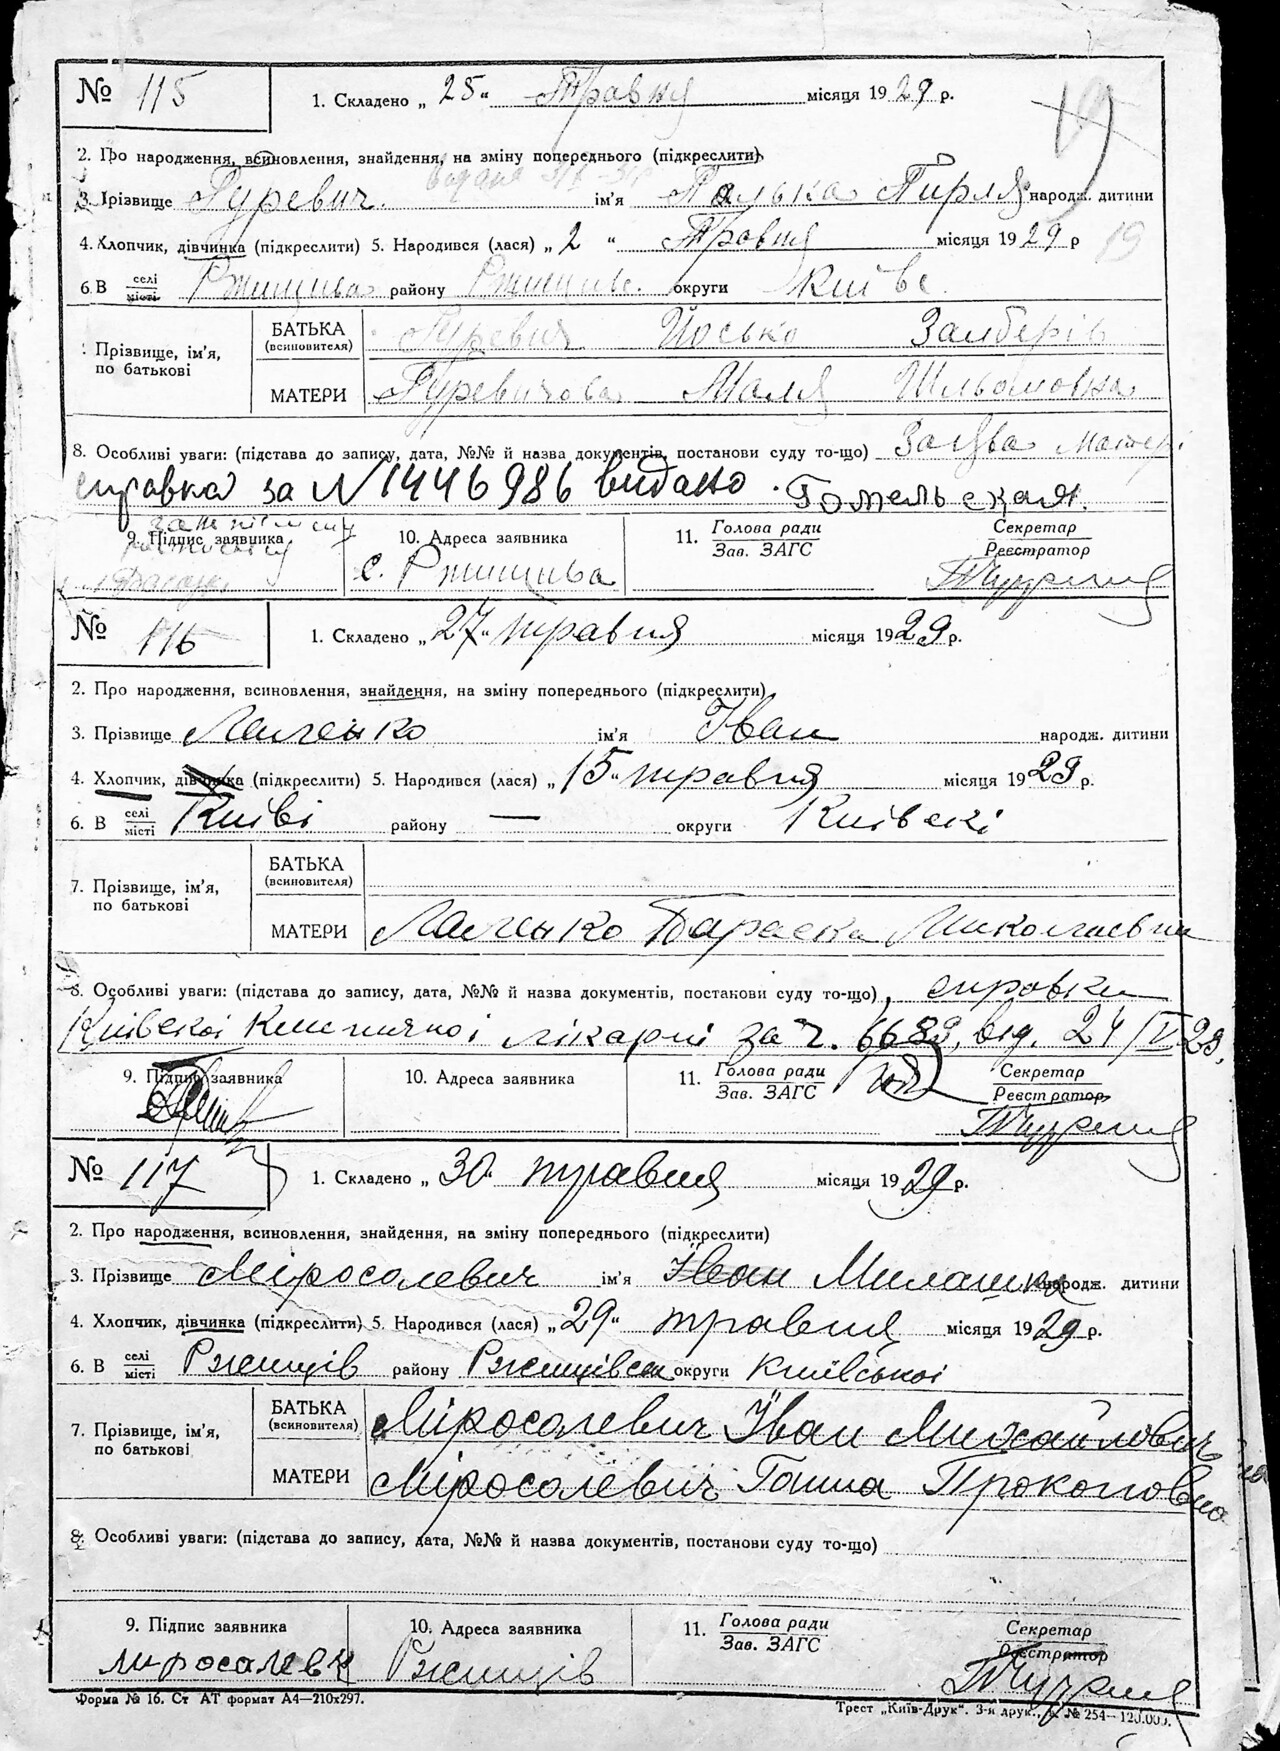 № 115 1. Складено „ 25 “ Травня місяця 1929 р. 19
2. Про народження, всиновлення, знайдення, на зміну попереднього (підкреслити)
3. Прізвище Гуревич. ім'я Пирля народж. дитини
4. Хлопчик, дівчинка (підкреслити) 5. Народився (лася) „ 2 “ Травня місяця 1929 р 19
6. В селі місті Ржищиве району Ржищивс. округи Київс.
Прізвище, ім'я, по батькові БАТЬКА (всиновителя) Гуревич Йосько
МАТЕРИ Гуревичова Маля Шльомовна
8. Особливі уваги: (підстава до запису, дата, №№ й назва документів, постанови суду то-що) Заява Матері
справка за N 1446986 видано. Гомельская.
9. Підпис заявника 10. Адреса заявника 11. Голова ради Зав. ЗАГС Секретар Реєстратор
с. Ржищива
№ 116 1. Складено „ 27 “ травня місяця 1929 р.
2. Про народження, всиновлення, знайдення, на зміну попереднього (підкреслити)
3. Прізвище Лаченко ім'я Іван народж. дитини
4. Хлопчик, дівчинка (підкреслити) 5. Народився (лася) „ 15 “ травня місяця 1929 р.
6. В селі місті Київі району — округи Київскі
7. Прізвище, ім'я, по батькові БАТЬКА (всиновителя)
МАТЕРИ Лаченко Параска Миколаевна
8. Особливі уваги: (підстава до запису, дата, №№ й назва документів, постанови суду то-що), справки
Київскої Клиничної лікарні за ч. 6689, від. 24/V 29.
9. Підпис заявника 10. Адреса заявника 11. Голова ради Зав. ЗАГС Секретар Реєстратор
№ 117 1. Складено „ 30 “ травня місяця 1929 р.
2. Про народження, всиновлення, знайдення, на зміну попереднього (підкреслити)
3. Прізвище Міросалевич ім'я Іван народж. дитини
4. Хлопчик, дівчинка (підкреслити) 5. Народився (лася) „ 29 “ травня місяця 1929 р.
6. В селі місті Ржищів району Ржищівськ округи Київської
7. Прізвище, ім'я, по батькові БАТЬКА (всиновителя) Міросалевич Іван Михайлович
МАТЕРИ Міросалевич Ганна Прокоповна
8. Особливі уваги: (підстава до запису, дата, №№ й назва документів, постанови суду то-що)
9. Підпис заявника 10. Адреса заявника 11. Голова ради Зав. ЗАГС Секретар Реєстратор
миросалевич Ржищів
Форма № 16. Ст АТ формат А4—210х297. Трест „Київ-Друк“. 3-я друк., № 254—120.000.